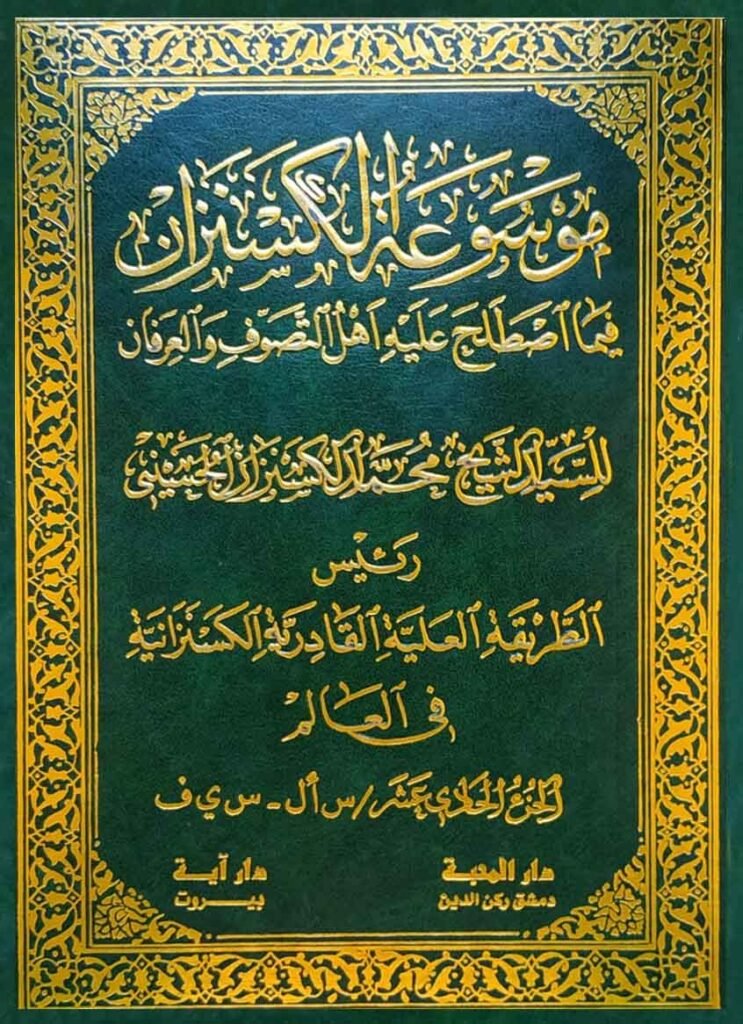 موسوعة الكسنزان
فيما اصطلح عليه أهل التصوف والعرفان
للسيد الشيخ محمد الكسنزان الحسيني
رئيس
الطريقة العلية القادرية الكسنزانية
في العالم
الجزء الحادي عشر / س أ ل - س ي ف
دار المحبة
دمشق ركن الدين
دار آية
بيروت